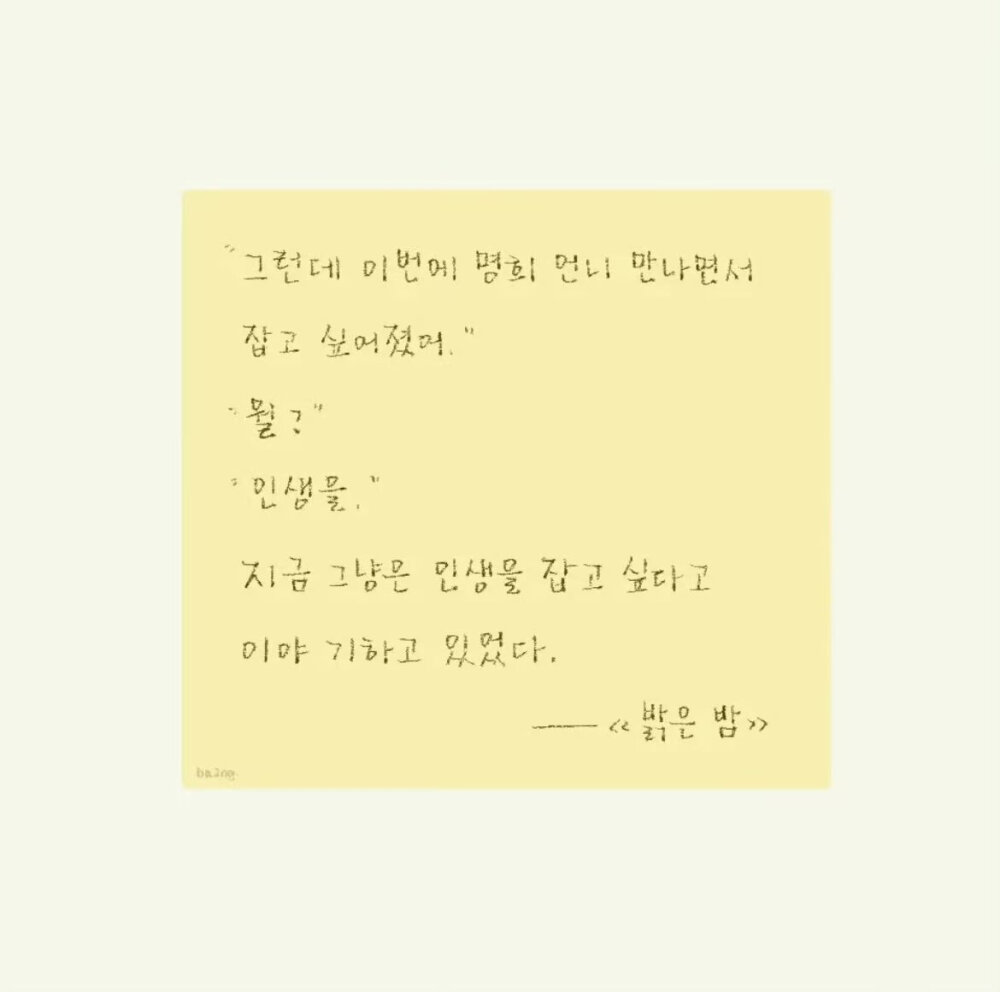 "그런데 이번에 명희 언니 만나면서
잡고 싶어졌어."
"뭘?"
"인생을."
지금 그냥은 인생을 잡고 싶다고
이야기하고 있었다.
——《밝은 밤》